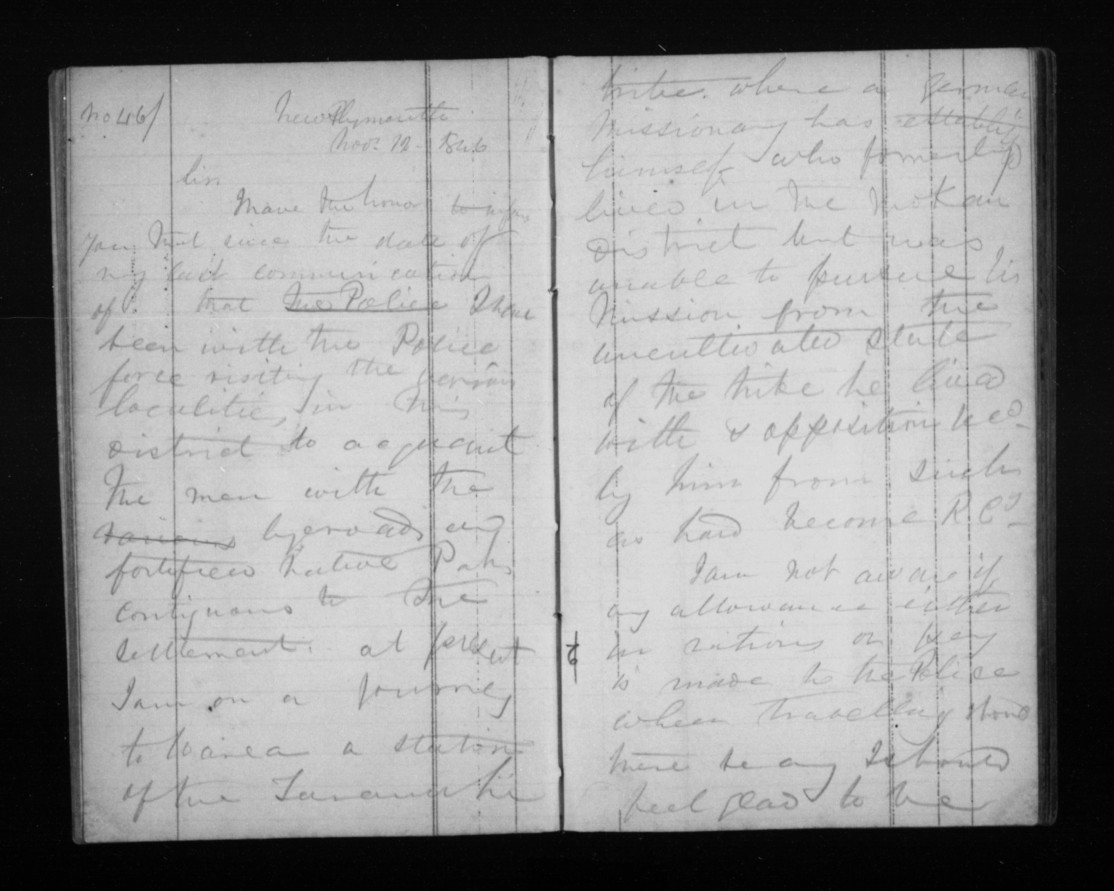 No 46/ New Plymouth
Nov. 12 - 1846
Sir
I have the honor to inform
you that since the date of
my last communication
of that the Police I have
been with the Police
force visiting the various
localities, in this
district to acquaint
the men with the
various byeroads any
fortified Native Pahs
contiguous to the
settlement. at present
I am on a journey
to Warea a station
of the Taranaki
tribe. where a German
Missionary has establis
himself who formerly
lived in the Mokau
District but was
unable to pursue his
Mission from the
uncultivated state
of the tribe he lived
with & opposition
by him from such
as had become R.C.s
I am not aware if
any allowance either
in rations or pay
is made to the Police
when travelling should
there be any I should
feel glad to be